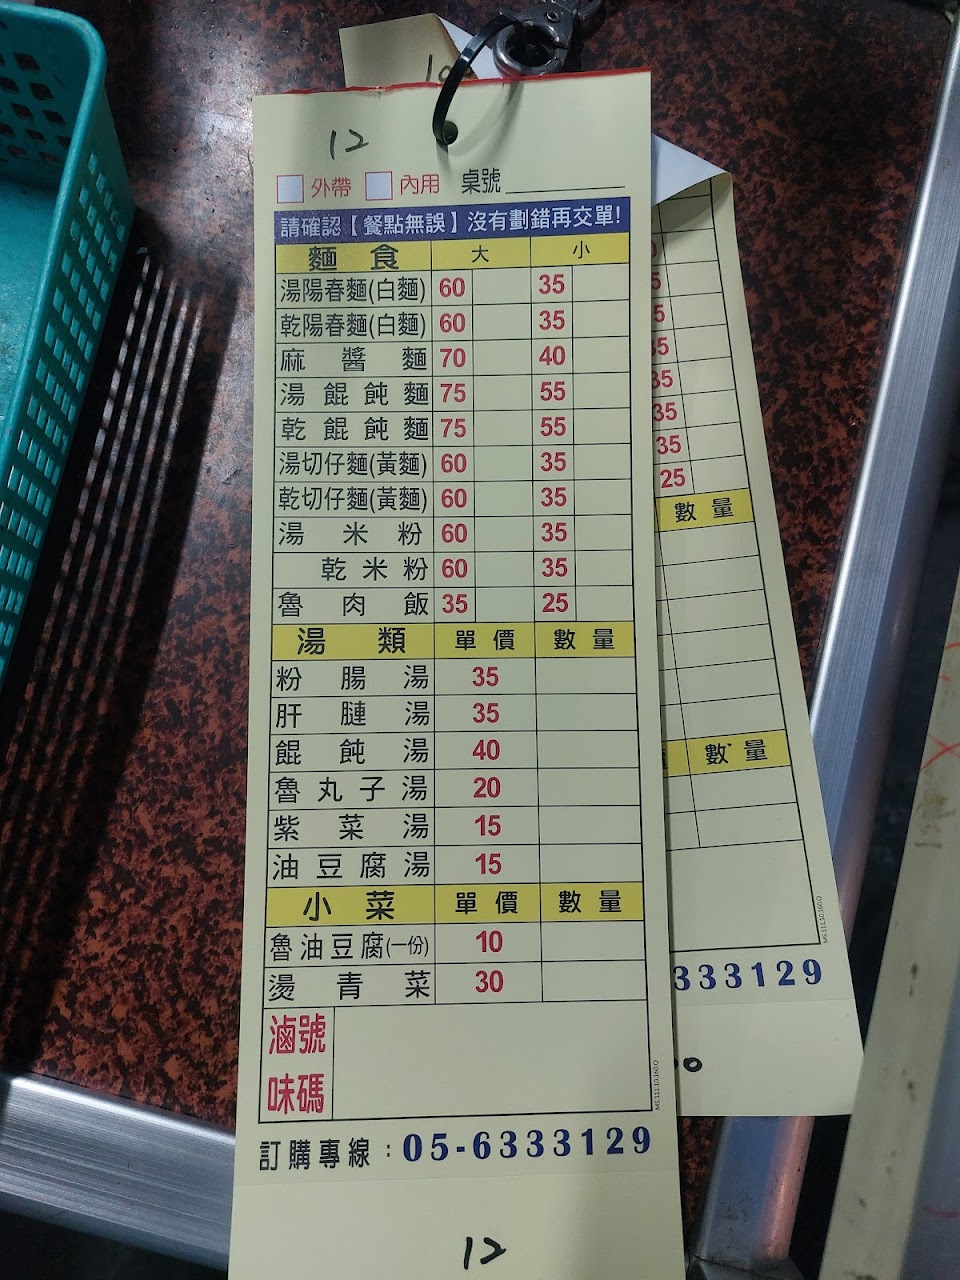 12
外帶 內用 桌號
請確認【餐點無誤】沒有劃錯再交單!
麵食 大 小
湯陽春麵(白麵) 60 35
乾陽春麵(白麵) 60 35
麻醬麵 70 40
湯餛飩麵 75 55
乾餛飩麵 75 55
湯切仔麵(黃麵) 60 35
乾切仔麵(黃麵) 60 35
湯米粉 60 35
乾米粉 60 35
魯肉飯 35 25
湯類 單價 數量
粉腸湯 35
肝腱湯 35
餛飩湯 40
魯丸子湯 20
紫菜湯 15
油豆腐湯 15
小菜 單價 數量
魯油豆腐(一份) 10
燙青菜 30
滷號
味碼
MS.111.10.160.Q
訂購專線:05-6333129
12
5
5
35
35
35
35
25
數量
數量
MS.111.10.160.Q
333129